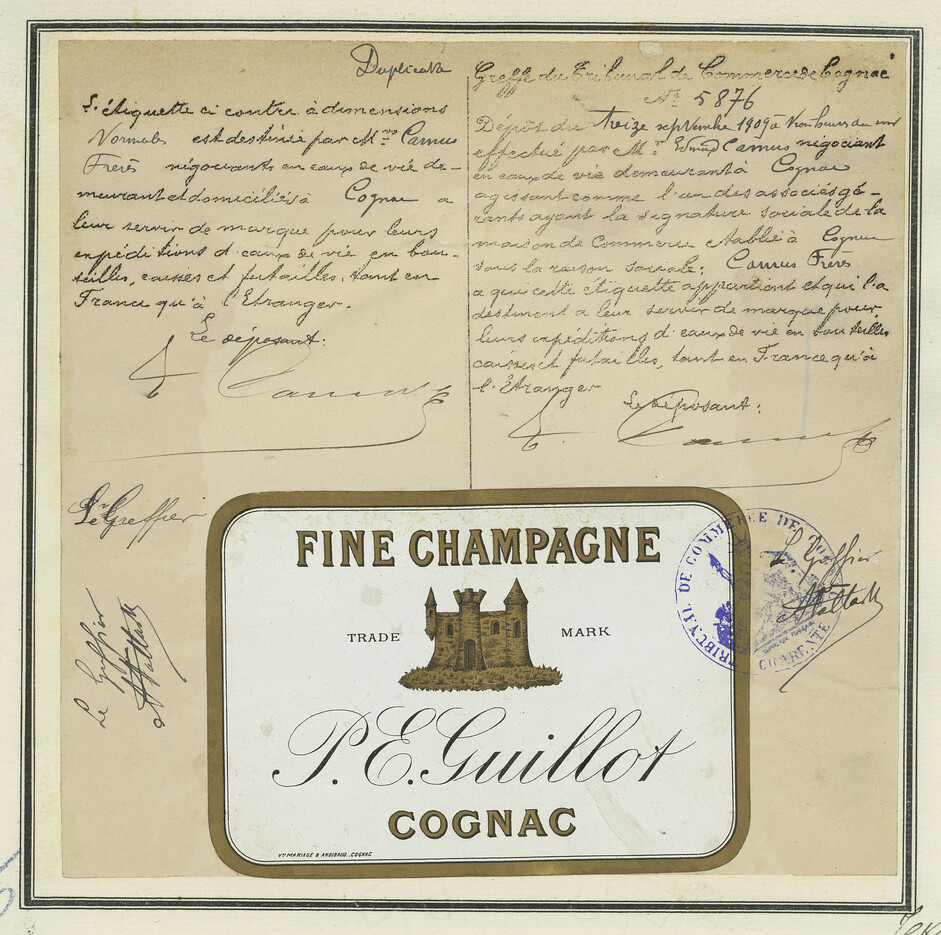 Duplicata
L'étiquette ci contre à dimensions
Normales est destinée par Mrs Camus
Frères négociants en eaux de vie de-
meurant et domiciliés à Cognac a
leur servir de marque pour leurs
expéditions d'eaux de vie en bou-
teilles, caisses et futailles, tant en
France qu'à l'Etranger.
Le déposant:
E. Camus
Le Greffier
Le Greffier
Greffe du Tribunal de Commerce de Cognac
No 5876
Dépôt du treize septembre 1909 à
effectué par Mr Edmd Camus négociant
en eaux de vie demeurant à Cognac
agissant comme l'un des associés gé-
rants ayant la signature sociale de la
maison de Commerce établie à Cognac
sous la raison sociale: Camus Frères
a qui cette étiquette appartient et qui l'a
destinent a leur servir de marque pour
leurs expéditions d'eaux de vie en bouteilles
caisses et futailles, tant en France qu'à
l'Etranger
Le déposant:
E. Camus
Le Greffier
TRIBUNAL DE COMMERCE DE COGNAC
CHARENTE
FINE CHAMPAGNE
TRADE MARK
P.E. Guillot
COGNAC
Vve MARIAGE & ANGIBAUD, COGNAC